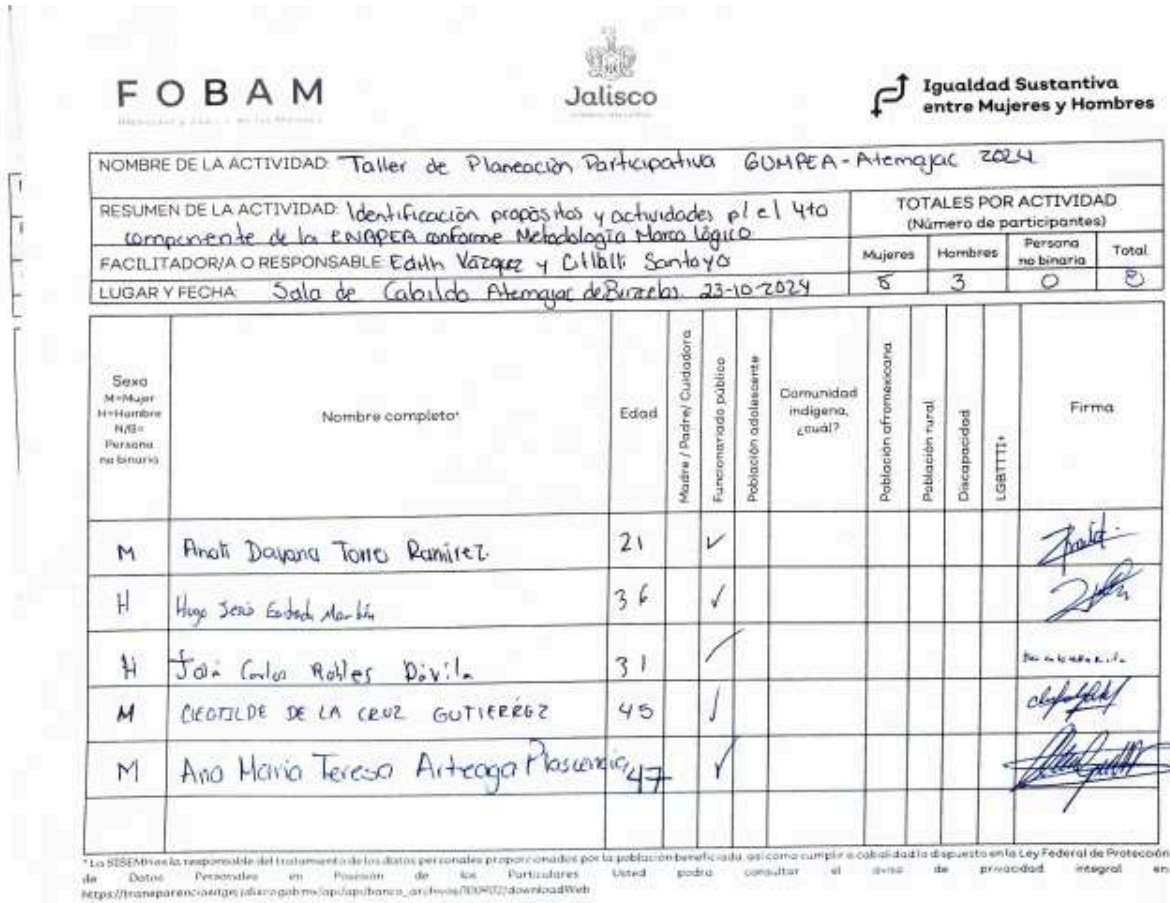 FOBAM
Jalisco
Igualdad Sustantiva
entre Mujeres y Hombres
NOMBRE DE LA ACTIVIDAD: Taller de Planeación Participativa GUMPEA-Atemajac 2024
RESUMEN DE LA ACTIVIDAD: Identificación propósitos y actividades p/ el 4to
componente de la ENAPEA conforme Metodología Marco Lógico
FACILITADOR/A O RESPONSABLE Edith Vázquez y Citlalli Santoyo
LUGAR Y FECHA Sala de Cabildo Atemajac de Brizuela. 23-10-2024
TOTALES POR ACTIVIDAD
(Número de participantes)
Mujeres Hombres Persona no binaria Total
5 3 0 8
Sexo
M=Mujer
H=Hombre
N/B=
Persona
no binaria
Nombre completo*
Edad
Madre / Padre/ Cuidadora
Funcionariado público
Población adolescente
Comunidad
indígena,
¿cuál?
Población afromexicana
Población rural
Discapacidad
LGBTTTI+
Firma
M Anati Dayana Torres Ramírez 21 ✓
H Hugo Jesús Martín 36 ✓
H Carlos Robles Dávila 31 ✓
M CLEOTILDE DE LA CRUZ GUTIERREZ 45 ✓
M Ana Maria Teresa Arteaga Plascencia 47 ✓
*La SISEMH es la responsable del tratamiento de los datos personales proporcionados por la población beneficiada, así como cumplir a cabalidad lo dispuesto en la Ley Federal de Protección
de Datos Personales en Posesión de los Particulares Usted podrá consultar el aviso de privacidad integral en